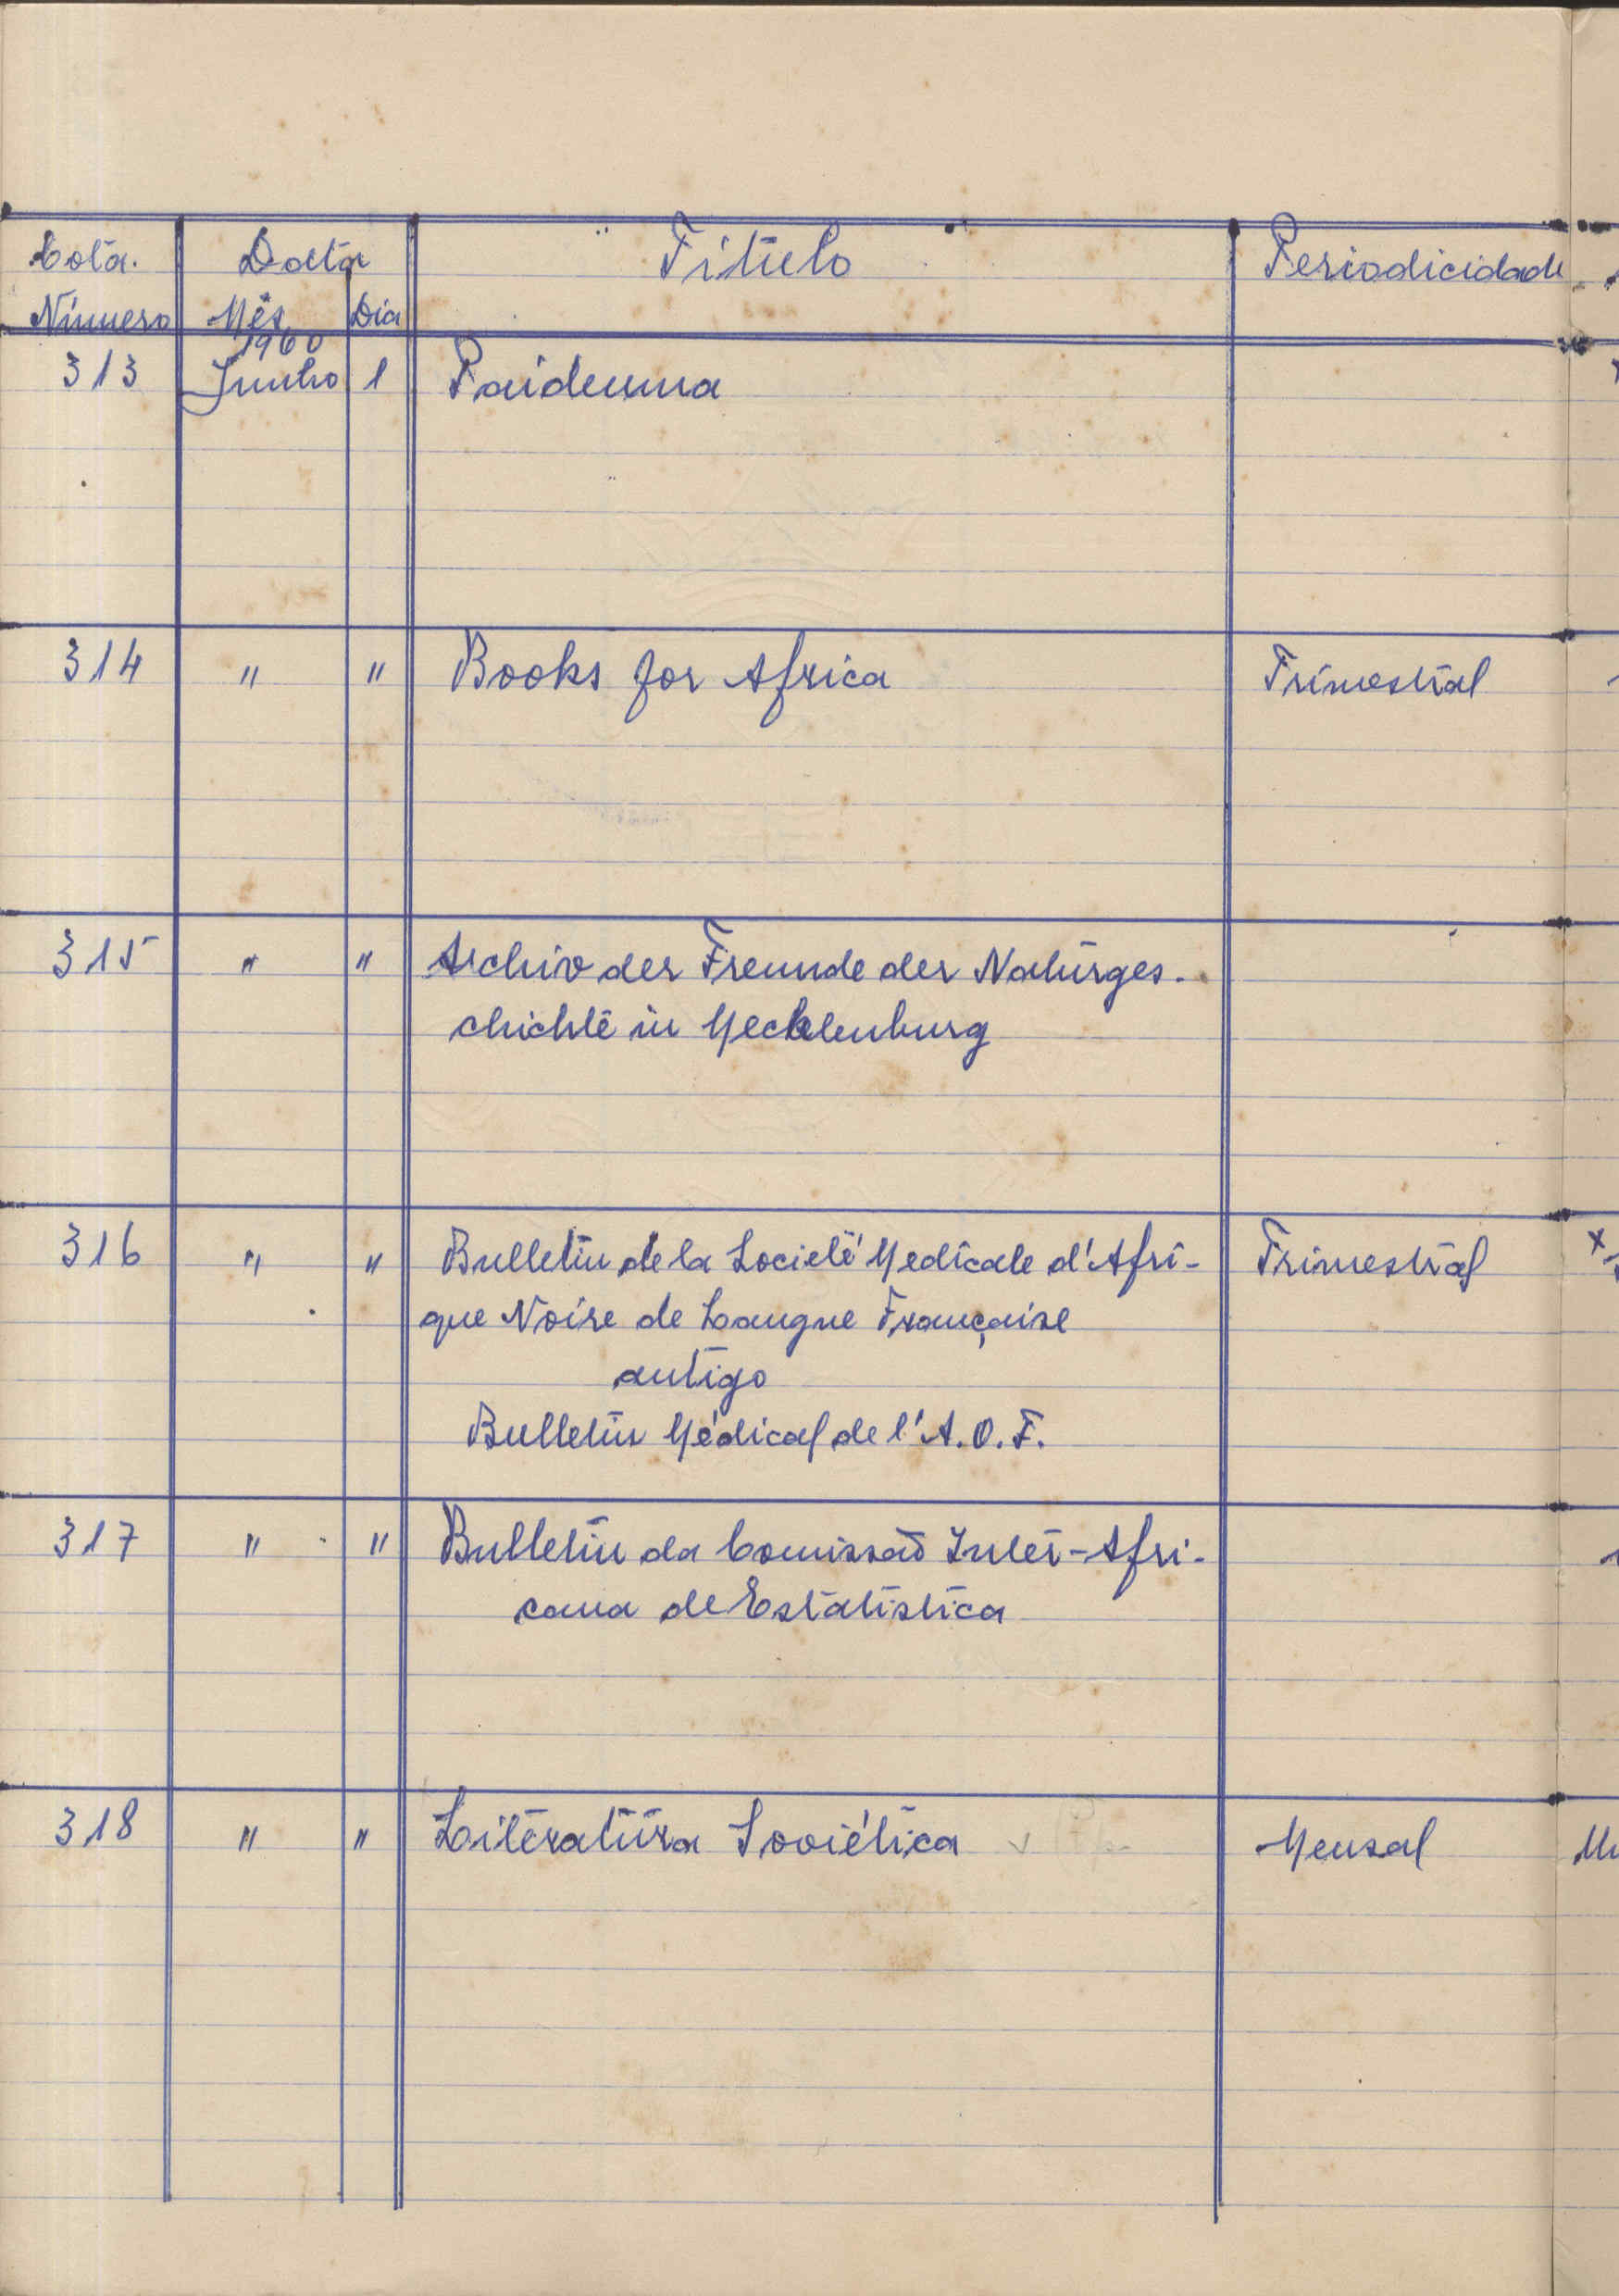 Cota. Data Titulo Periodicidade
Número Mês Dia
1960
313 Junho 1 Paideuma
314 " " Books for Africa Trimestral
315 " " Archiv der Freunde der Naturges-
chichte in Mecklenburg
316 " " Bulletin de la Societé Medicale d'Afri- Trimestral
que Noire de Langue Française
antigo
Bulletin Médical de l'A.O.F.
317 " " Bulletin da Comissão Inter-Afri-
cana de Estatistica
318 " " Literatura Soviética Mensal